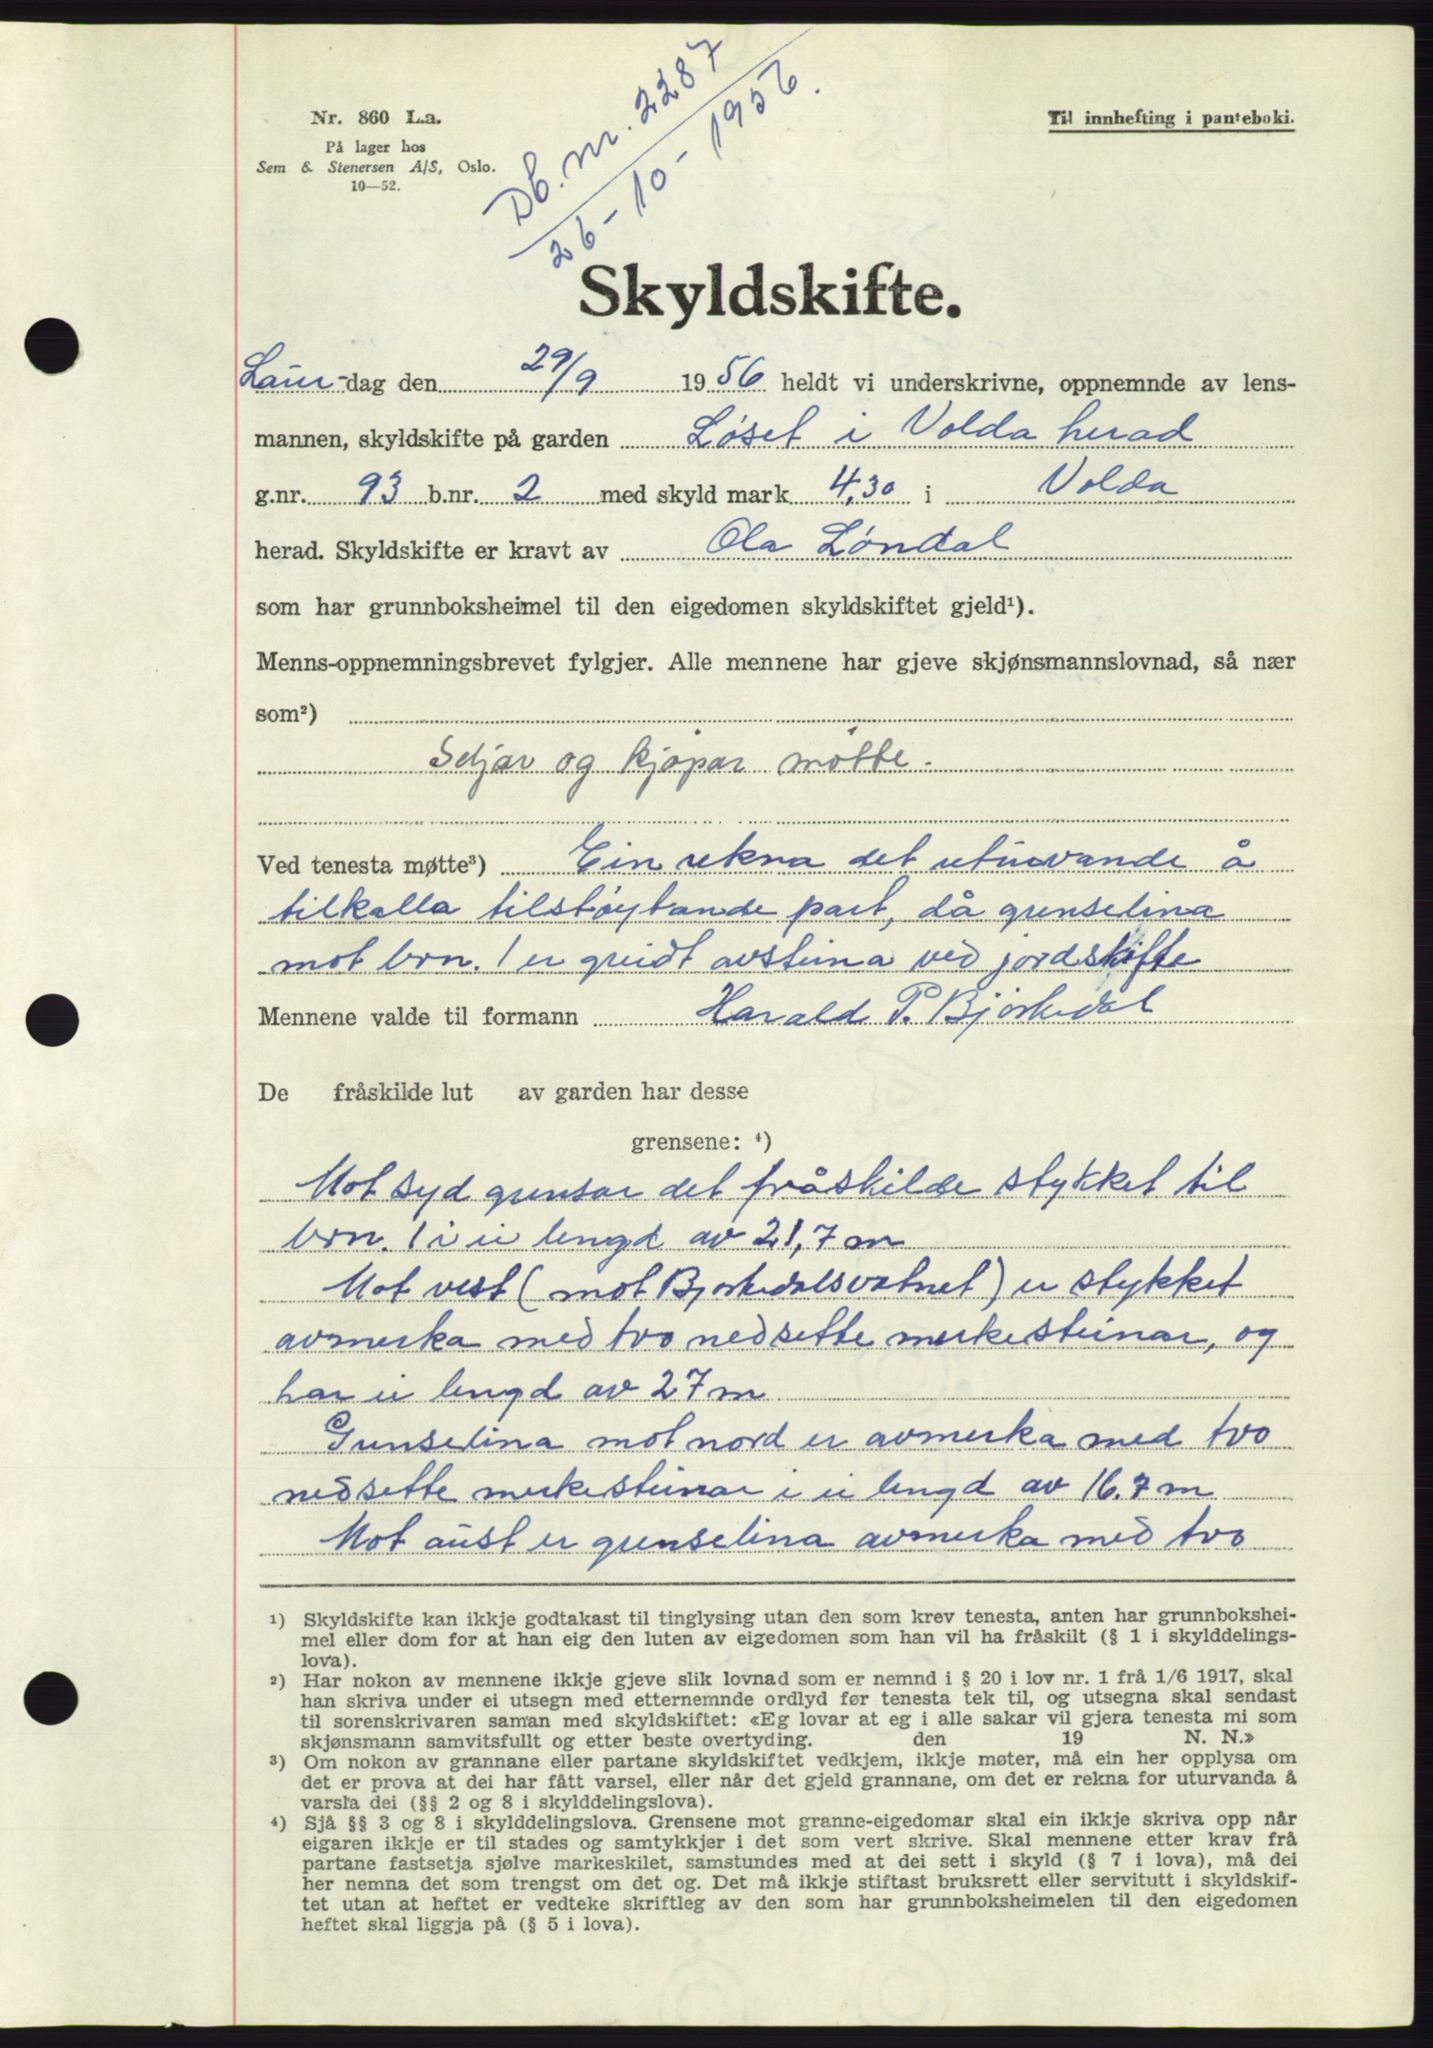 Db. nr. 2287
26-10-1956.
Nr. 860 L.a.
På lager hos
Sem & Stenersen A/S, Oslo.
10—52.
Til innhefting i panteboki.
Skyldskifte.
Laur-dag den 29/9 1956 heldt vi underskrivne, oppnemnde av lens-
mannen, skyldskifte på garden Løset i Volda herad
g.nr. 93 b.nr. 2 med skyld mark 4,30 i Volda
herad. Skyldskifte er kravt av Ola Løndal
som har grunnboksheimel til den eigedomen skyldskiftet gjeld¹).
Menns-oppnemningsbrevet fylgjer. Alle mennene har gjeve skjønsmannslovnad, så nær
som²)
Seljar og kjøpar møtte.
Ved tenesta møtte³) Ein rekna det uturvande å
tilkalla tilstøytande part, då grenselina
mot brn. 1 er greidt avsteina ved jordskifte
Mennene valde til formann Harald P. Bjørkedal
De fråskilde lut av garden har desse
grensene: ⁴)
Mot syd grensar det fråskilde stykket til
brn. 1 i ei lengd av 21,7 m
Mot vest (mot Bjørkedalsvatnet) er stykket
avmerka med tvo nedsette merkesteinar, og
har ei lengd av 27 m
Grenselina mot nord er avmerka med tvo
nedsette merkesteinar i ei lengd av 16.7 m
Mot aust er grenselina avmerka med tvo
¹) Skyldskifte kan ikkje godtakast til tinglysing utan den som krev tenesta, anten har grunnbokshei-
mel eller dom for at han eig den luten av eigedomen som han vil ha fråskilt (§ 1 i skylddelings-
lova).
²) Har nokon av mennene ikkje gjeve slik lovnad som er nemnd i § 20 i lov nr. 1 frå 1/6 1917, skal
han skriva under ei utsegn med etternemnde ordlyd før tenesta tek til, og utsegna skal sendast
til sorenskrivaren saman med skyldskiftet: «Eg lovar at eg i alle sakar vil gjera tenesta mi som
skjønsmann samvitsfullt og etter beste overtyding. den 19 N. N.»
³) Om nokon av grannane eller partane skyldskiftet vedkjem, ikkje møter, må ein her opplysa om
det er prova at dei har fått varsel, eller når det gjeld grannane, om det er rekna for uturvanda å
varsla dei (§§ 2 og 8 i skylddelingslova).
⁴) Sjå §§ 3 og 8 i skylddelingslova. Grensene mot granne-eigedomar skal ein ikkje skriva opp når
eigaren ikkje er til stades og samtykkjer i det som vert skrive. Skal mennene etter krav frå
partane fastsetja sjølve markeskilet, samstundes med at dei sett i skyld (§ 7 i lova), må dei
her nemna det som trengst om det og. Det må ikkje stiftast bruksrett eller servitutt i skyldskif-
tet utan at heftet er vedteke skriftleg av den som har grunnboksheimelen til den eigedomen
heftet skal liggja på (§ 5 i lova).